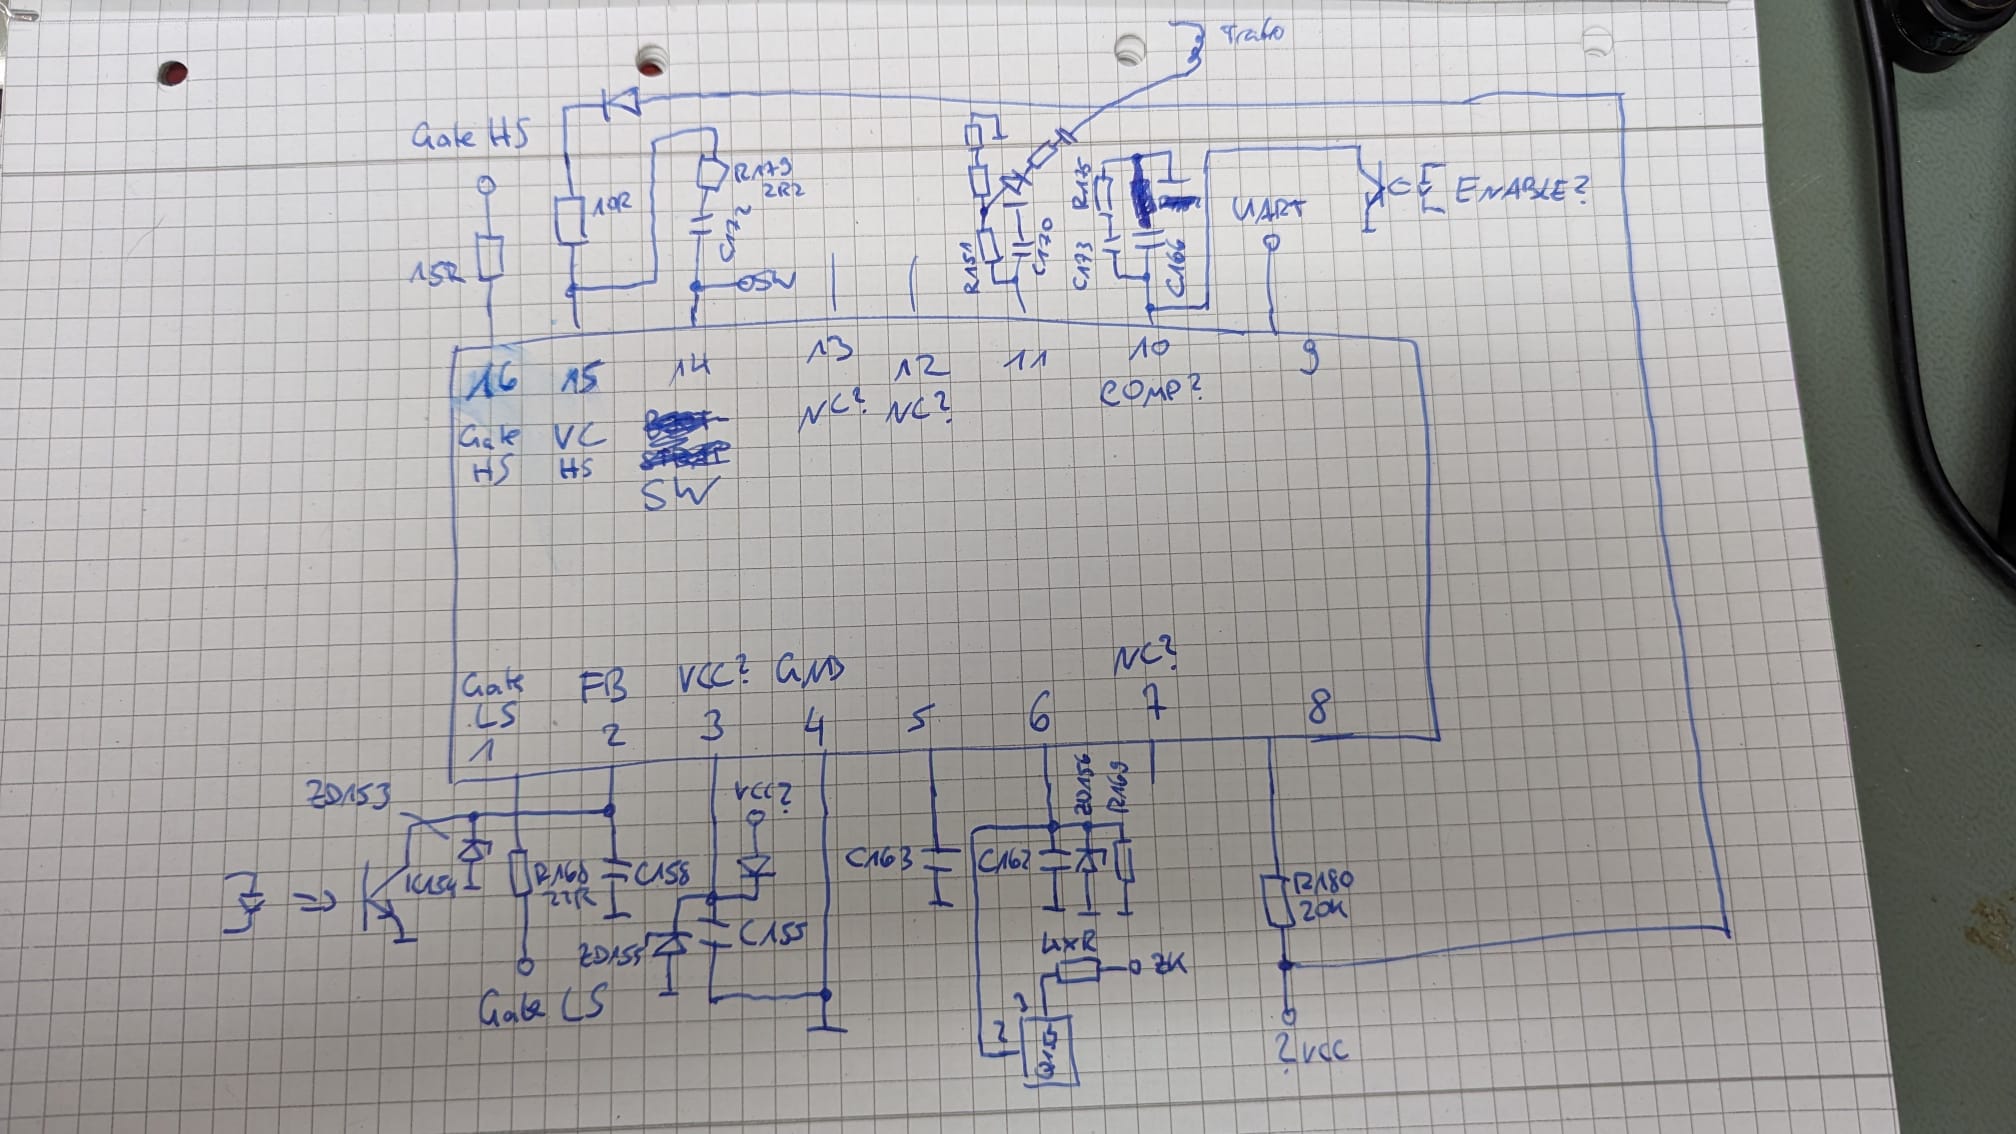 Trafo
Gate HS
15R
10R
R179
2R2
C172
OSW
R151
C170
R175
C173
C166
UART
ENABLE?
16
15
14
13
12
11
10
9
Gate
HS
VC
HS
SW
NC?
NC?
COMP?
Gate
LS
FB
VCC?
GND
NC?
1
2
3
4
5
6
7
8
ZD153
IC154
R160
22R
C158
VCC?
ZD155
C155
Gate LS
C163
C162
ZD156
R169
4xR
ZK
3
2
R180
20K
?VCC